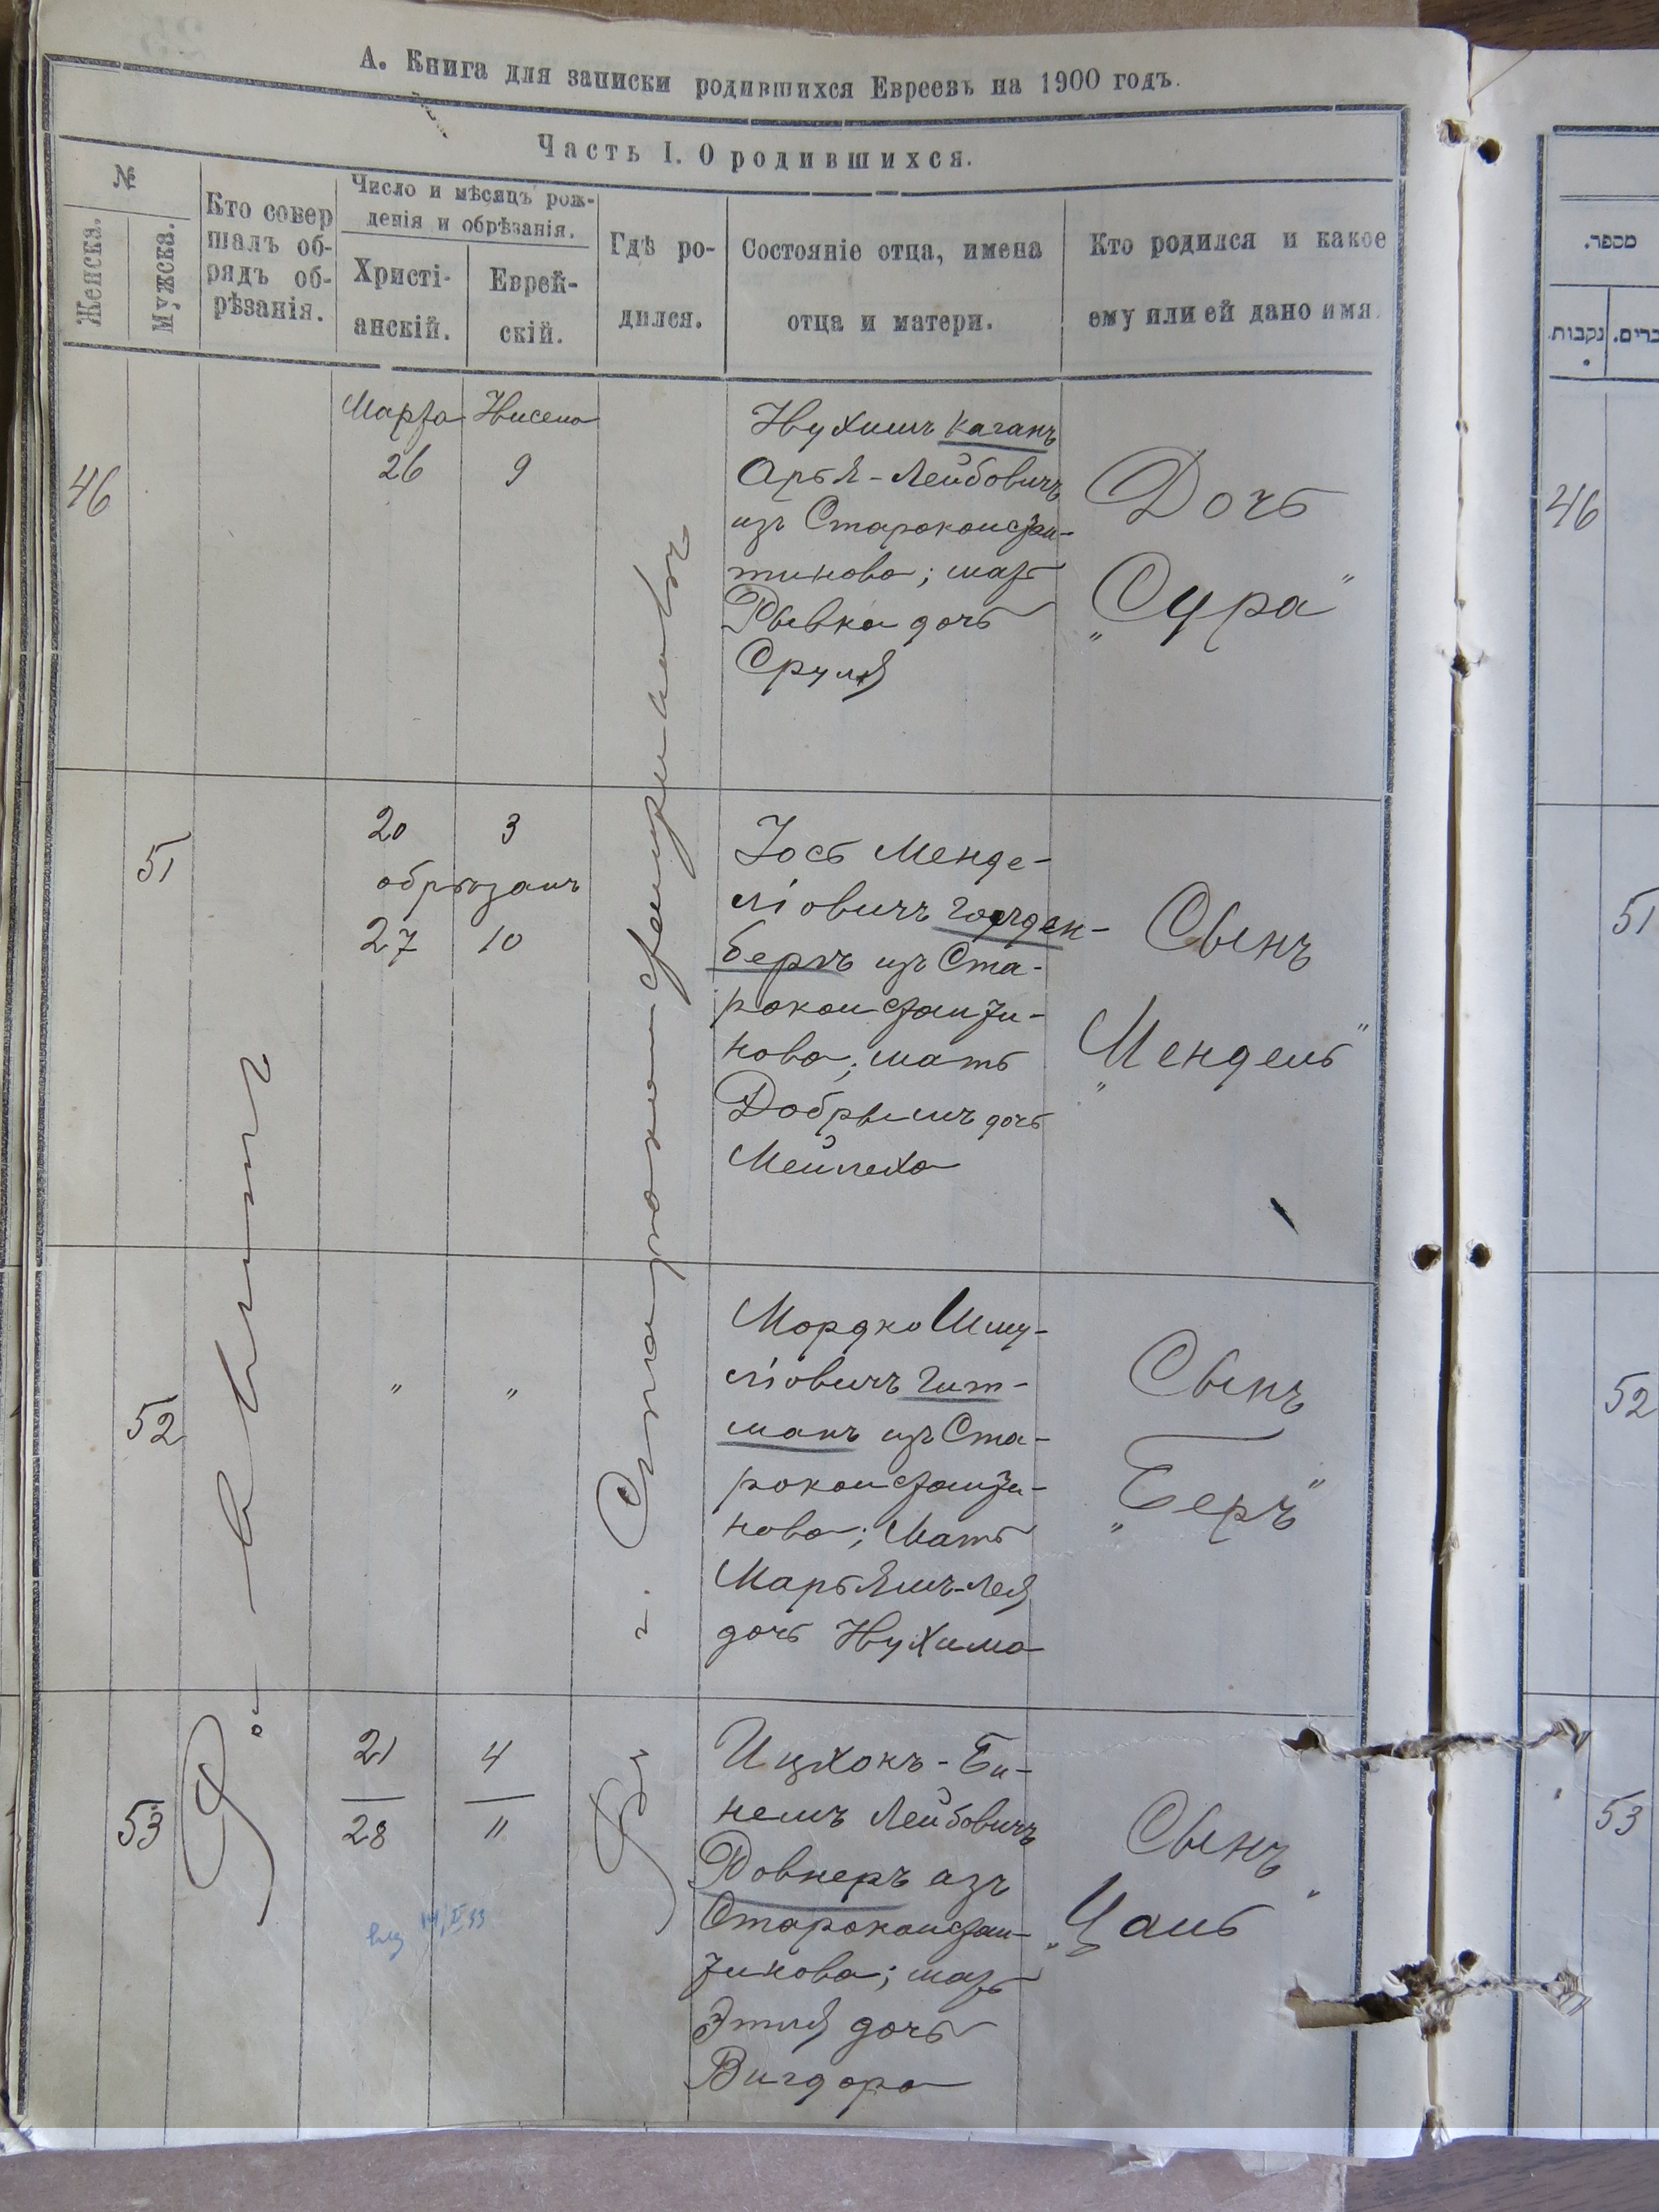 А. Книга для записки родившихся Евреевъ на 1900 годъ.
Часть I. О родившихся.
№
Женска.
Мужска.
Кто совер
шалъ об-
рядъ об-
рѣзанія.
Число и мѣсяцъ рож-
денія и обрѣзанія.
Христі-
анскій.
Еврей-
скій.
Гдѣ ро-
дился.
Состояніе отца, имена
отца и матери.
Кто родился и какое
ему или ей дано имя.
Марта Нисена
46
26
9
Нухимъ Каганъ
Арья-Лейбовичъ
изъ Староконстан-
тинова; мать
Рывка дочь
Сруля
Дочь
„Сура"
51
20
3
обрѣзанъ
27
10
Іось Менде-
ліовичъ Гольден-
бергъ изъ Ста-
роконстанти-
нова; мать
Добрышъ дочь
Мейлеха
Сынъ
„Мендель"
52
"
"
Мордко Шму-
ліовичъ Гит-
манъ изъ Ста-
роконстанти-
нова; Мать
Марьямъ-Лея
дочь Нухима
Сынъ
„Беръ"
53
21
4
28
11
Ицхокъ-Би-
немъ Лейбовичъ
Ровнеръ изъ
Староконстан-
тинова; мать
Этля дочь
Вигдора
Сынъ
„Цаль"
Въ г. Староконстантиновѣ
מספר.
נקבות.
46
51
52
53